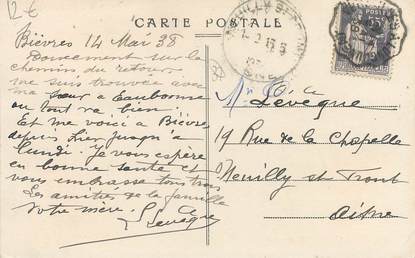 12 €
CARTE POSTALE
Bièvres 14 Mai 38
Doucement sur la
chemin du retour
me suis trouvée avec
ma sœur à Eaubonne
ou tout va bien.
Et me voici à Bièvres
depuis hier jusqu'à
lundi. Je vous espère
en bonne santé et
vous embrasse tous trois
Les amitiés de la famille
Votre mère
Leveque
Leveque
19 Rue de la Chapelle
Neuilly st Front
Aisne